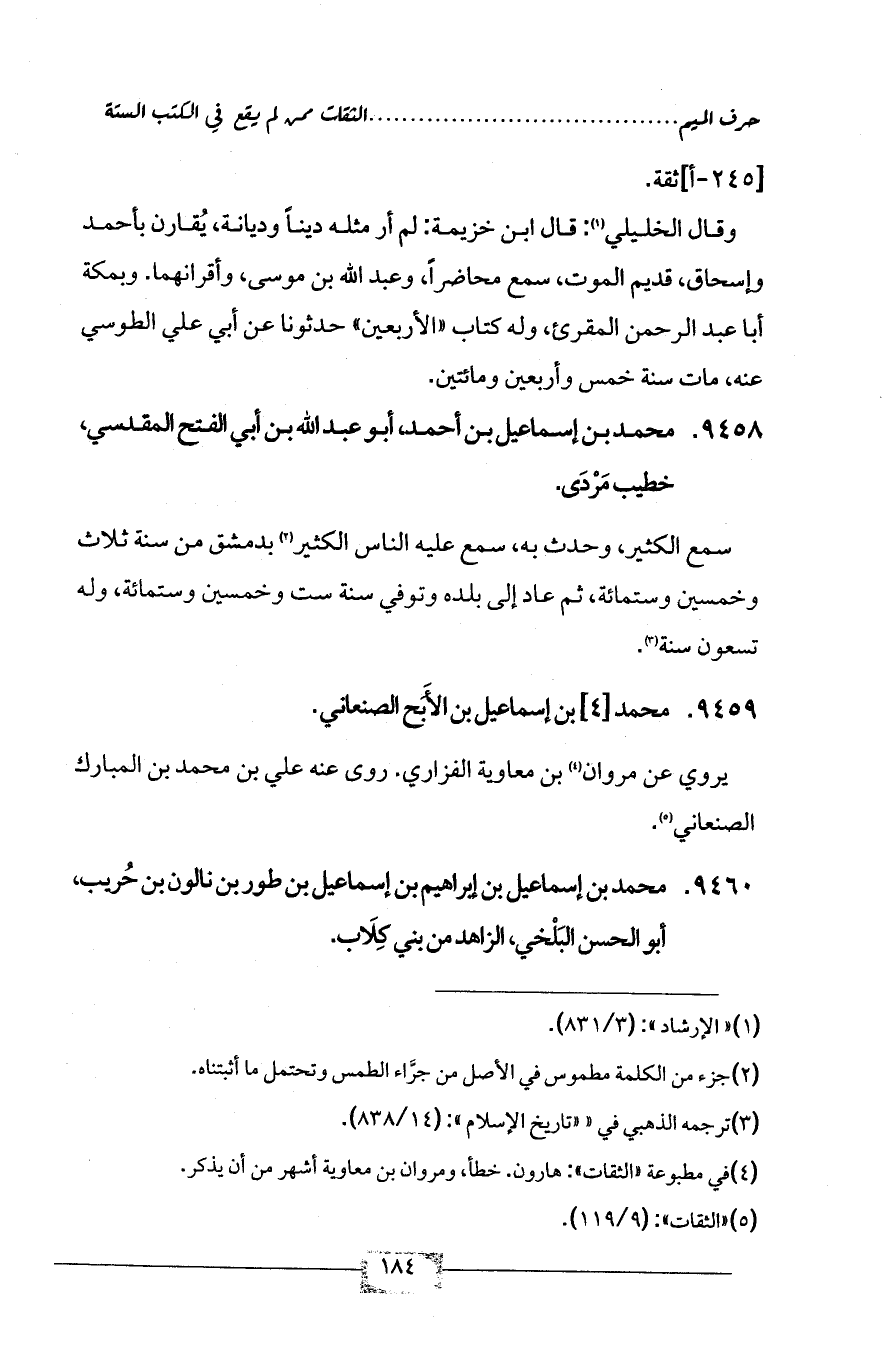 حرف الميم......................................الثقات ممن لم يقع في الكتب الستة
[٢٤٥-أ]ثقة.
وقال الخليلي(١): قال ابن خزيمة: لم أر مثله ديناً وديانة، يُقارن بأحمد
وإسحاق، قديم الموت، سمع محاضراً، وعبد الله بن موسى، وأقرانهما. وبمكة
أبا عبد الرحمن المقرئ، وله كتاب «الأربعين» حدثونا عن أبي علي الطوسي
عنه، مات سنة خمس وأربعين ومائتين.
٩٤٥٨. محمد بن إسماعيل بن أحمد، أبو عبد الله بن أبي الفتح المقدسي،
خطيب مَرْدَى.
سمع الكثير، وحدث به، سمع عليه الناس الكثير(٢) بدمشق من سنة ثلاث
وخمسين وستمائة، ثم عاد إلى بلده وتوفي سنة ست وخمسين وستمائة، وله
تسعون سنة(٣).
٩٤٥٩. محمد [٤] بن إسماعيل بن الأَبَح الصنعاني.
يروي عن مروان(٤) بن معاوية الفزاري. روى عنه علي بن محمد بن المبارك
الصنعاني(٥).
٩٤٦٠. محمد بن إسماعيل بن إبراهيم بن إسماعيل بن طور بن نالون بن حُريب،
أبو الحسن البَلْخي، الزاهد من بني كِلَاب.
(١)« الإرشاد »: (٨٣١/٣).
(٢)جزء من الكلمة مطموس في الأصل من جرَّاء الطمس وتحتمل ما أثبتناه.
(٣)ترجمه الذهبي في « «تاريخ الإسلام »: (٨٣٨/١٤).
(٤)في مطبوعة «الثقات»: هارون. خطأ، ومروان بن معاوية أشهر من أن يذكر.
(٥)«الثقات»: (١١٩/٩).
١٨٤